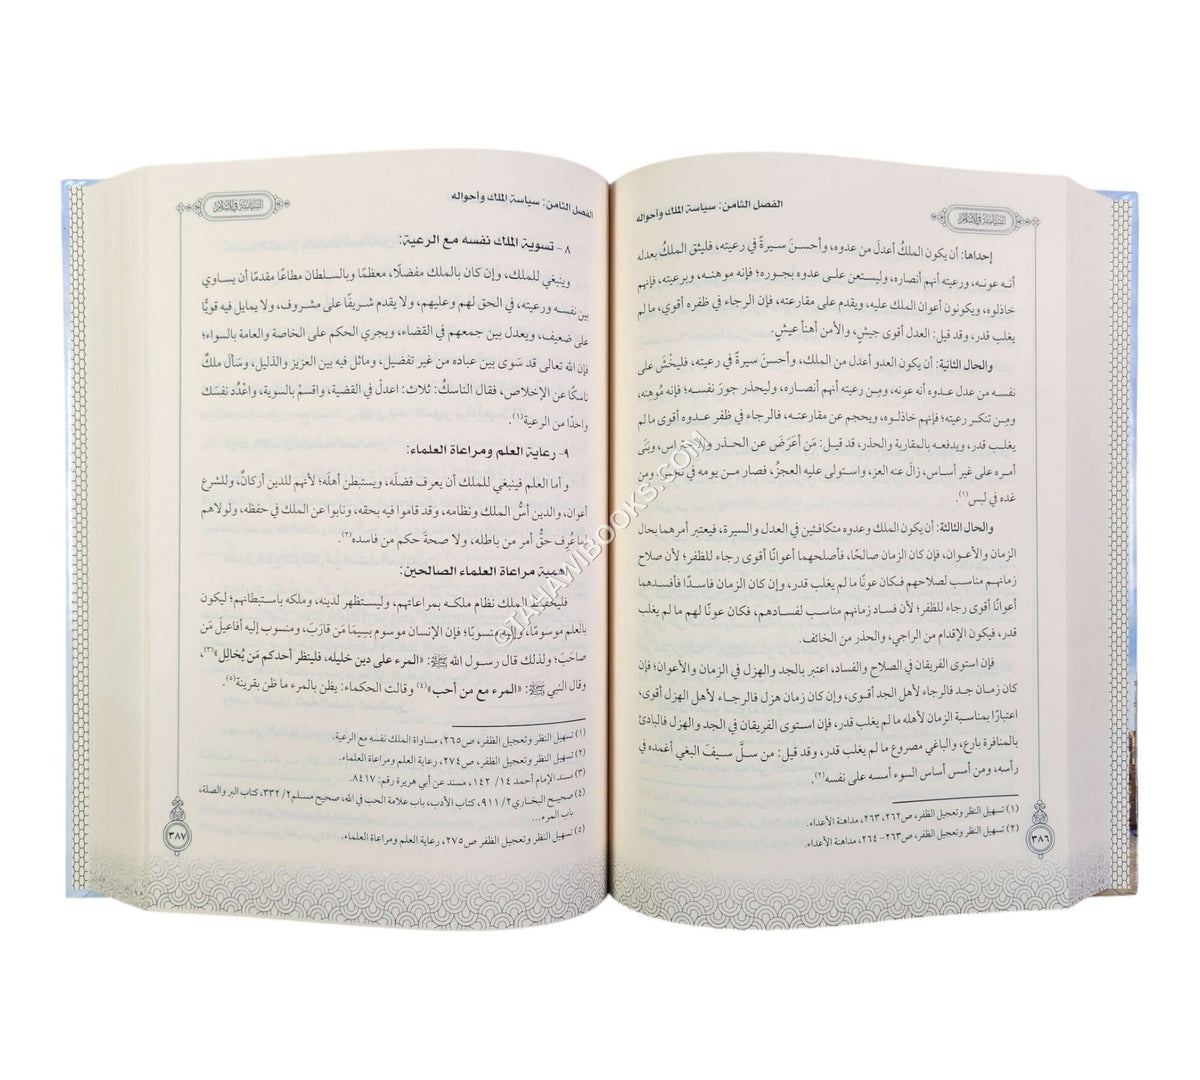 الفصل الثامن: سياسة الملك وأحواله
السياسة في الإسلام
إحداها: أن يكون الملكُ أعدلَ من عدوه، وأحسنَ سيرةً في رعيته، فليثق الملكُ بعدله
أنه عونـه، ورعيته أنهم أنصاره، وليستعن علـى عدوه بجوره؛ فإنه موهنـه، وبرعيته، فإنهم
خاذلوه، ويكونون أعوان الملك عليه، ويقدم على مقارعته، فإن الرجاء في ظفره أقوي، ما لم
يغلب قدر، وقد قيل: العدل أقوى جيشٍ، والأمن أهنأ عيشٍ.
والحال الثانية: أن يكون العدو أعدل من الملك، وأحسنَ سيرةً في رعيته، فليخْشَ على
نفسـه من عدل عدوه أنه عونه، ومِـن رعيته أنهم أنصـاره، وليحذر جورَ نفسـه؛ فإنه مُوهِنه،
ومِـن تنكـر رعيته؛ فإنهم خاذلـوه، ويحجم عن مقارعتـه، فالرجاء في ظفر عـدوه أقوى ما لم
يغلب قدر، ويدفعـه بالمقاربة والحذر، قد قيـل: مَن أعرَضَ عن الحـذر والاحتراس، وبَنَى
أمره على غير أساس، زالَ عنه العز، واستولى عليه العجزُ، فصار مـن يومه في نحس، ومن
غده في لبس(١).
والحال الثالثة: أن يكون الملك وعدوه متكافئين في العدل والسيرة، فيعتبر أمرهما بحال
الزمان والأعـوان، فإن كان الزمان صالحًا، فأصلحهما أعوانًا أقوى رجاء للظفر؛ لأن صلاح
زمانهم مناسب لصلاحهم فكان عونًا ما لم يغلب قدر، وإن كان الزمان فاسدًا فأفسدهما
أعوانًا أقوى رجاء للظفر؛ لأن فساد زمانهم مناسب لفسادهم، فكان عونًا لهم ما لم يغلب
قدر، فيكون الإقدام من الراجي، والحذر من الخائف.
فإن استوى الفريقان في الصلاح والفساد، اعتبر بالجد والهزل في الزمان والأعوان؛ فإن
كان زمـان جـد فالرجاء لأهل الجد أقوى، وإن كان زمان هزل فالرجـاء لأهل الهزل أقوى،
اعتبارًا بمناسبة الزمان لأهله ما لم يغلب قدر، فإن استـوى الفريقان في الجد والهزل فالبادئ
بالمنافرة بازع، والباغي مصروع ما لم يغلب قدر، وقد قيل: مـن سـلَّ سيفَ البغي أغمده في
رأسه، ومن أسس أساس السوء أسسه على نفسه(٢).
(١) تسهيل النظر وتعجيل الظفر، ص٢٦٢، ٢٦٣، مداهنة الأعداء.
(٢) تسهيل النظر وتعجيل الظفر، ص٢٦٣- ٢٦٤، مداهنة الأعداء.
٣٨٦
الفصل الثامن: سياسة الملك وأحواله
السياسة في الإسلام
٨ - تسوية الملك نفسه مع الرعية:
وينبغي للملك، وإن كان بالملك مفضلًا، معظمًا وبالسلطان مطاعًا مقدمًا أن يساوي
بين نفسـه ورعيته، في الحق لهم وعليهم، ولا يقدم شـريفًا على مشـروف، ولا يمايل فيه قويًّا
على ضعيف، ويعدل بين جمعهم في القضاء، ويجري الحكم على الخاصة والعامة بالسواء؛
فإن الله تعالى قد سَوى بين عباده من غير تفضيل، وماثل فيه بين العزيز والذليل، وسَألَ ملكٌ
ناسكًا عن الإخلاص، فقال الناسكُ: ثلاث: اعدلْ في القضية، واقسمْ بالسوية، واعْدُد نفسَك
واحدًا من الرعية(١).
٩- رعاية العلم ومراعاة العلماء:
و أما العلم فينبغي للملك أن يعرف فضلَه، ويستبطن أهلَه؛ لأنهم للدين أركانٌ، وللشرع
أعوان، والدين أسُّ الملك ونظامه، وقد قاموا فيه بحقه، ونابوا عن الملك في حفظه، ولولاهم
لما عُرِف حقُّ أمر من باطله، ولا صحةَ حكم من فاسده(٢).
أهمية مراعاة العلماء الصالحين:
فليحفظ الملك نظام ملكـه بمراعاتهم، وليسـتظهر لدينه، وملكه باستبطانهم؛ ليكون
بالعلم موسومًـا، وإليه منسوبًا؛ فإن الإنسان موسوم بسِيمَا مَن قارَبَ، ومنسوب إليه أفاعيلَ مَن
صاحَبَ؛ ولذلك قال رسول الله ﷺ: «المرء على دين خليله، فلينظر أحدكم مَن يُخالِل»(٣)
وقال النبي ﷺ: «المرء مع من أحب»(٤) وقالت الحكماء: يظن بالمرء ما ظن بقرينة(٥).
(١) تسهيل النظر وتعجيل الظفر، ص٢٦٥، مساواة الملك نفسه مع الرعية.
(٢) تسهيل النظر وتعجيل الظفر، ص٢٧٤، رعاية العلم ومراعاة العلماء.
(٣) مسند الإمام أحمد ١٤/ ١٤٢، مسند عن أبي هريرة رقم: ٨٤١٧.
(٤) صحيح البخاري ٢/ ٩١١، كتاب الأدب، باب علامة الحب في الله، صحيح مسلم ٢/ ٣٣٢، كتاب البر والصلة،
باب المرء...
(٥) تسهيل النظر وتعجيل الظفر، ص٢٧٥، رعاية العلم ومراعاة العلماء.
٣٨٧
©TAHAWIBOOKS.COM